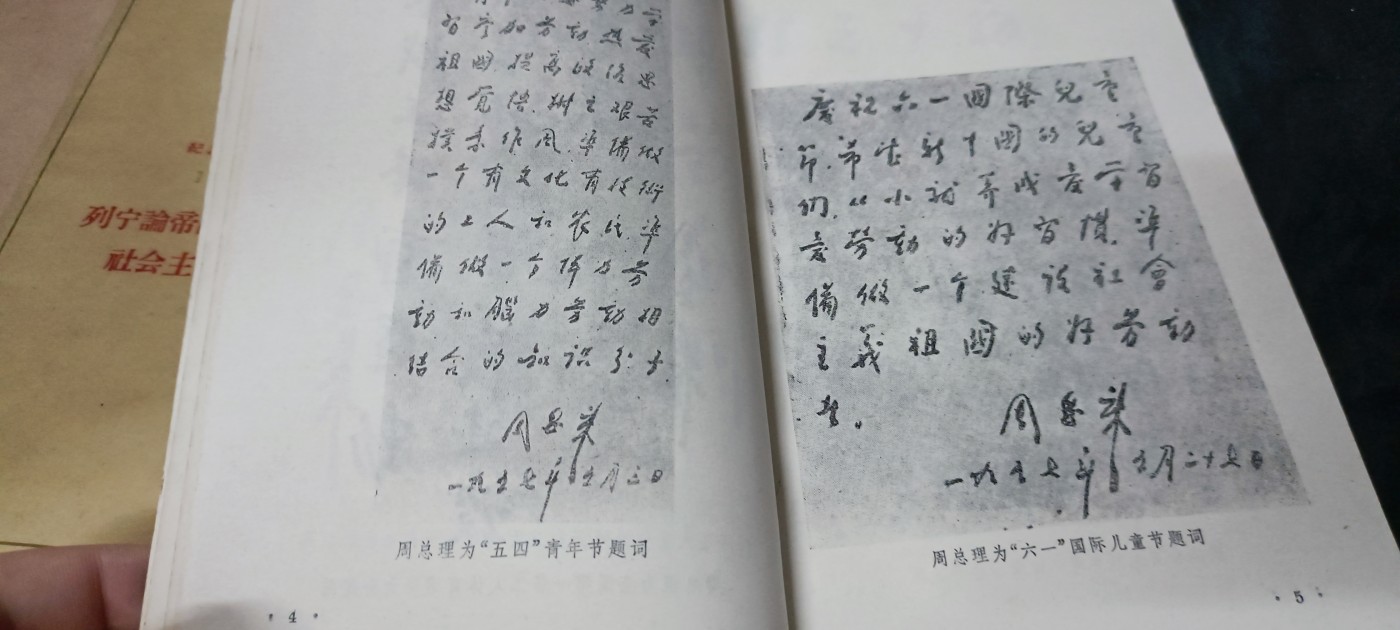 列宁論帝
社会主
習参加劳動,热爱
祖國,提高政治思
想覚悟,樹立艰苦
樸素作風,準備做
一个有文化有技術
的工人和农民,準
備做一个体力劳
動和腦力劳動相
结合的知识分子。
周恩来
一九五七年五月三日
周总理为“五四”青年节题词
· 4 ·
慶祝六一國際兒童
節,希望新中國的兒童
们,从小就养成爱学習
爱劳動的好習慣,準
備做一个建设社會
主義祖國的好劳動
者。
周恩来
一九五七年五月二十七日
周总理为“六一”国际儿童节题词
· 5 ·